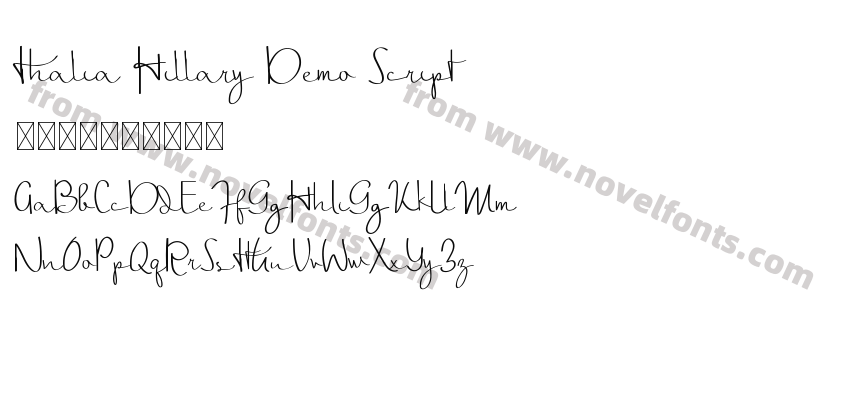 Thalia Hillary Demo Script
AaBbCcDdEeFfGgHhIiGgKkLlMm
NnOoPpQqRrSsTtUuVvWwXxYyZz
from www.novelfonts.com
from www.novelfonts.com